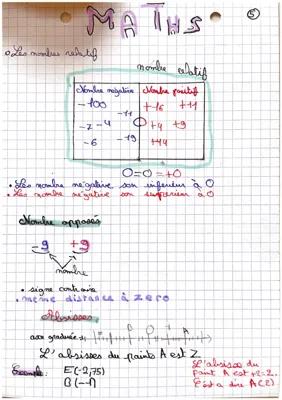 MATHS
5
Les nombres relatif
nombre relatif
Nombre négative
Nombre positif
-100
-11
-7 -4
-19
-6
0
+16 +11
+4 +9
+14
0=0=+0
• Les nombre négative son inferieur à 0
• Les nombre négative son superieur à 0
Nombre opposés
-9 +9
nombre
• signe contraire
• même distance à zero
Absisses
axe graduée
L'absisses du points A est 2
Exemple: E(-2,75)
B(-1)
L'absisse du
point A est +2=2.
C'est a dire A(2)